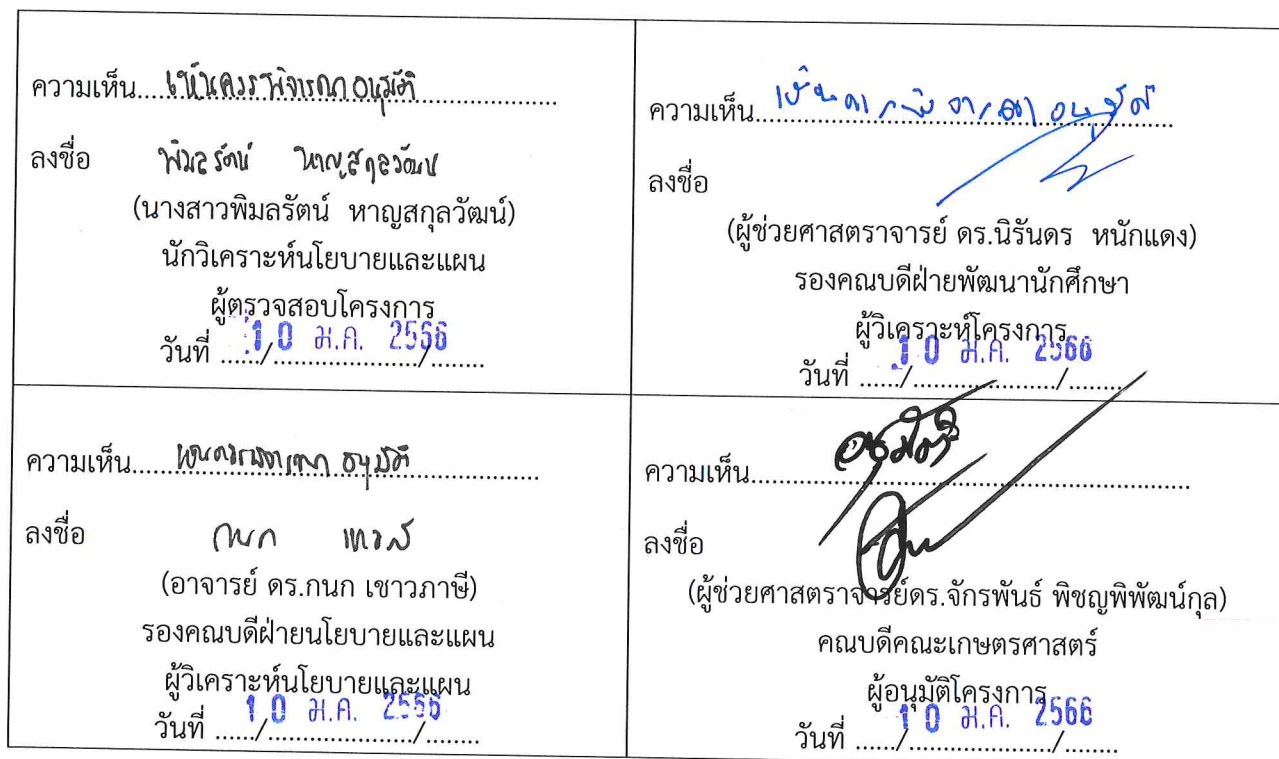 ความเห็น....เห็นควรพิจารณาอนุมัติ....................
ลงชื่อ พิมลรัตน์ หาญสกุลวัฒน์
(นางสาวพิมลรัตน์ หาญสกุลวัฒน์)
นักวิเคราะห์นโยบายและแผน
ผู้ตรวจสอบโครงการ
วันที่ 10 ม.ค. 2566
ความเห็น เห็นควรพิจารณาอนุมัติ
ลงชื่อ
(ผู้ช่วยศาสตราจารย์ ดร.นิรันดร หนักแดง)
รองคณบดีฝ่ายพัฒนานักศึกษา
ผู้วิเคราะห์โครงการ
วันที่ 10 ม.ค. 2566
ความเห็น.....เห็นควรพิจารณา อนุมัติ
ลงชื่อ กนก
(อาจารย์ ดร.กนก เชาวภาษี)
รองคณบดีฝ่ายนโยบายและแผน
ผู้วิเคราะห์นโยบายและแผน
วันที่ 10 ม.ค. 2566
ความเห็น อนุมัติ
ลงชื่อ
(ผู้ช่วยศาสตราจารย์ดร.จักรพันธ์ พิชญพิพัฒน์กุล)
คณบดีคณะเกษตรศาสตร์
ผู้อนุมัติโครงการ
วันที่ 10 ม.ค. 2566